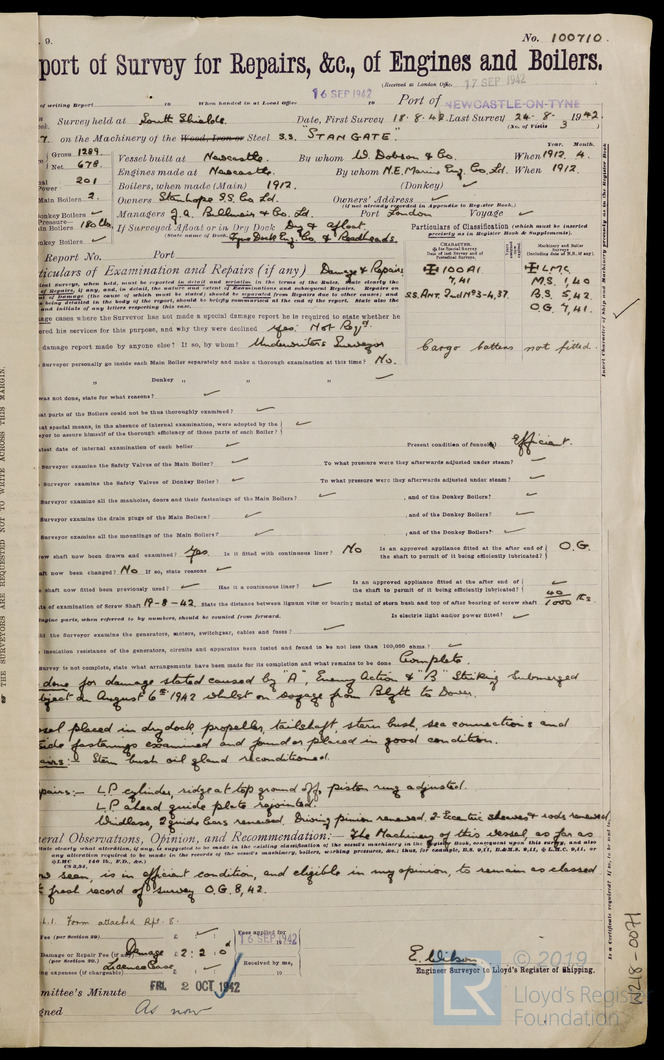 . 9.
No. 100710
port of Survey for Repairs, &c., of Engines and Boilers.
(Received at London Office 17 SEP 1942
of writing Report 19 When handed in at Local Office 16 SEP 1942 19 Port of NEWCASTLE-ON-TYNE
Survey held at South Shields. Date, First Survey 18.8.42. Last Survey 24.8. 1942.
(No. of Visits 3
on the Machinery of the Wood, Iron or Steel S.S. "STANGATE."
Gross 1289
Net 678
Vessel built at Newcastle. By whom W. Dobson & Co. When 1912. 4.
Year. Month.
201
Engines made at Newcastle. By whom N.E. Marine Eng. Co. Ld. When 1912.
Main Boilers 2.
Boilers, when made (Main) 1912. (Donkey) ✓
Owners Stanhope S.S. Co Ld. Owners' Address ✓
(if not already recorded in Appendix to Register Book.)
Donkey Boilers ✓
Managers J.A. Billmeir & Co. Ld. Port London Voyage ✓
Pressure—
in Boilers 180 lbs.
If Surveyed Afloat or in Dry Dock Dry & afloat
(State name of Dock.) Tyne Dock Eng. Co. & Readheads.
Donkey Boilers ✓
Particulars of Classification (which must be inserted
precisely as in Register Book & Supplements).
Report No. Port
ticulars of Examination and Repairs (if any) Damage & Repairs
CHARACTER.
✠ 100A1
7,41
S.S.Ant. 2nd No3-4,37.
✠ LMC
M.S. 1,40
B.S. 5,42
O.G. 7,41.
age cases where the Surveyor has not made a special damage report he is required to state whether he
ered his services for this purpose, and why they were declined Yes. Not Reqd.
damage report made by anyone else? If so, by whom? Underwriters Surveyor
Cargo battens not fitted.
Surveyor personally go inside each Main Boiler separately and make a thorough examination at this time? No.
" Donkey " " ✓
was not done, state for what reasons? ✓
at parts of the Boilers could not be thoroughly examined? ✓
at special means, in the absence of internal examination, were adopted by the
eyor to assure himself of the thorough efficiency of those parts of each Boiler? ✓
atest date of internal examination of each boiler ✓ Present condition of funnel Efficient.
Surveyor examine the Safety Valves of the Main Boiler? ✓ To what pressure were they afterwards adjusted under steam? ✓
Surveyor examine the Safety Valves of Donkey Boiler? ✓ To what pressure were they afterwards adjusted under steam? ✓
Surveyor examine all the manholes, doors and their fastenings of the Main Boilers? ✓ , and of the Donkey Boilers? ✓
Surveyor examine the drain plugs of the Main Boilers? ✓ , and of the Donkey Boilers? ✓
Surveyor examine all the mountings of the Main Boilers? ✓ , and of the Donkey Boilers? ✓
ew shaft now been drawn and examined? Yes. Is it fitted with continuous liner? No Is an approved appliance fitted at the after end of
the shaft to permit of it being efficiently lubricated? O.G.
aft now been changed? No If so, state reasons ✓
shaft now fitted been previously used? ✓ Has it a continuous liner? ✓ Is an approved appliance fitted at the after end of
the shaft to permit of it being efficiently lubricated? ✓
te of examination of Screw Shaft 19-8-42. State the distance between lignum vitæ or bearing metal of stern bush and top of after bearing of screw shaft 40/1000 ths.
ngine parts, when referred to by numbers, should be counted from forward. Is electric light and/or power fitted? ✓
id the Surveyor examine the generators, motors, switchgear, cables and fuses? ✓
insulation resistance of the generators, circuits and apparatus been tested and found to be not less than 100,000 ohms? ✓
survey is not complete, state what arrangements have been made for its completion and what remains to be done Complete.
done for damage stated caused by "A", Enemy Action & "B" Striking Submerged
bject on August 6th 1942 whilst on voyage from Blyth to Dover.
ssel placed in dry dock, propeller, tailshaft, stern bush, sea connections and
side fastenings examined and found or placed in good condition.
airs:- Stern bush oil gland reconditioned.
epairs:— L.P. cylinder, ridge at top ground off, piston ring adjusted.
L.P. ahead guide plate rejointed.
Windlass, 2 guide bars renewed. Driving pinion renewed. 2-Eccentric sheaves & rods renewed.
eral Observations, Opinion, and Recommendation:— The Machinery of this vessel, as far as
w seen, is in efficient condition, and eligible in my opinion, to remain as classed
fresh record of survey O.G. 8,42.
L.I. Form attached Rpt. 8.
Fee (per Section 29) £ ✓
Fees applied for
16 SEP 1942
Damage or Repair Fee (if any)
(per Section 29.) Damage £ 2 : 2 : 0
Licence Case
Received by me,
ng expenses (if chargeable) ✓ 19
E. Wilson
Engineer Surveyor to Lloyd's Register of Shipping.
mmittee's Minute FRI. 2 OCT 1942
gned As now
© 2019
LR
Lloyd's Register
Foundation
W218-0071
THE SURVEYORS ARE REQUESTED NOT TO WRITE ACROSS THIS MARGIN.